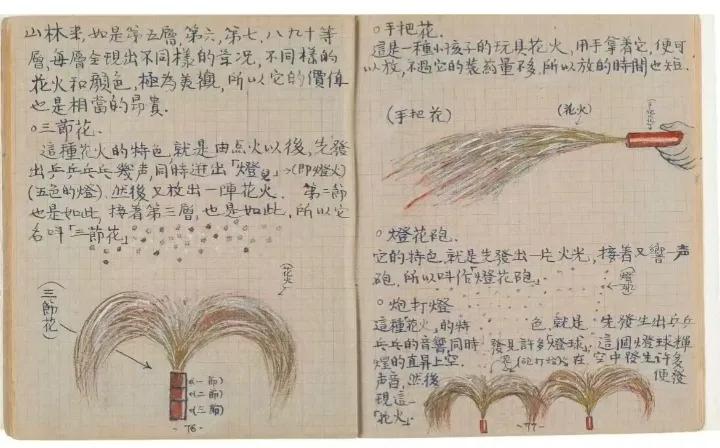 山林來，如是第五層，第六，第七，八九十等
層，每層全現出不同樣的景況，不同樣的
花火和顏色，極為美觀，所以它的價值
也是相當的昂貴．
○三節花．
這種花火的特色，就是由点火以後，先發
出乒乓乒乓幾声，同時逛出「燈兒」→(即燈火)
(五色的燈)．然後又放出一陣花火．第二節
也是如此，接着第三層，也是如此，所以它
名叫「三節花」
(花火)
(三節花)
(一節)
(二節)
(三節)
-76-
○手把花．
這是一種小孩子的玩具花火，用手拿着它，便可
以放，不過它的装葯量不多，所以放的時間也短．
(手把花)
(花火)
(手把花)
○燈花砲．
它的特色，就是先發出一片火光，接着又響一声
砲，所以叫作「燈花砲」
○炮打燈
這種「花火」，的特色就是先發生出乒乓
乒乓的音響，同時發見許多「燈球」，這個燈球輝
煌的直昇上空．在空中發生許多
声音，然後便發
現這一
「花火」．
-77-